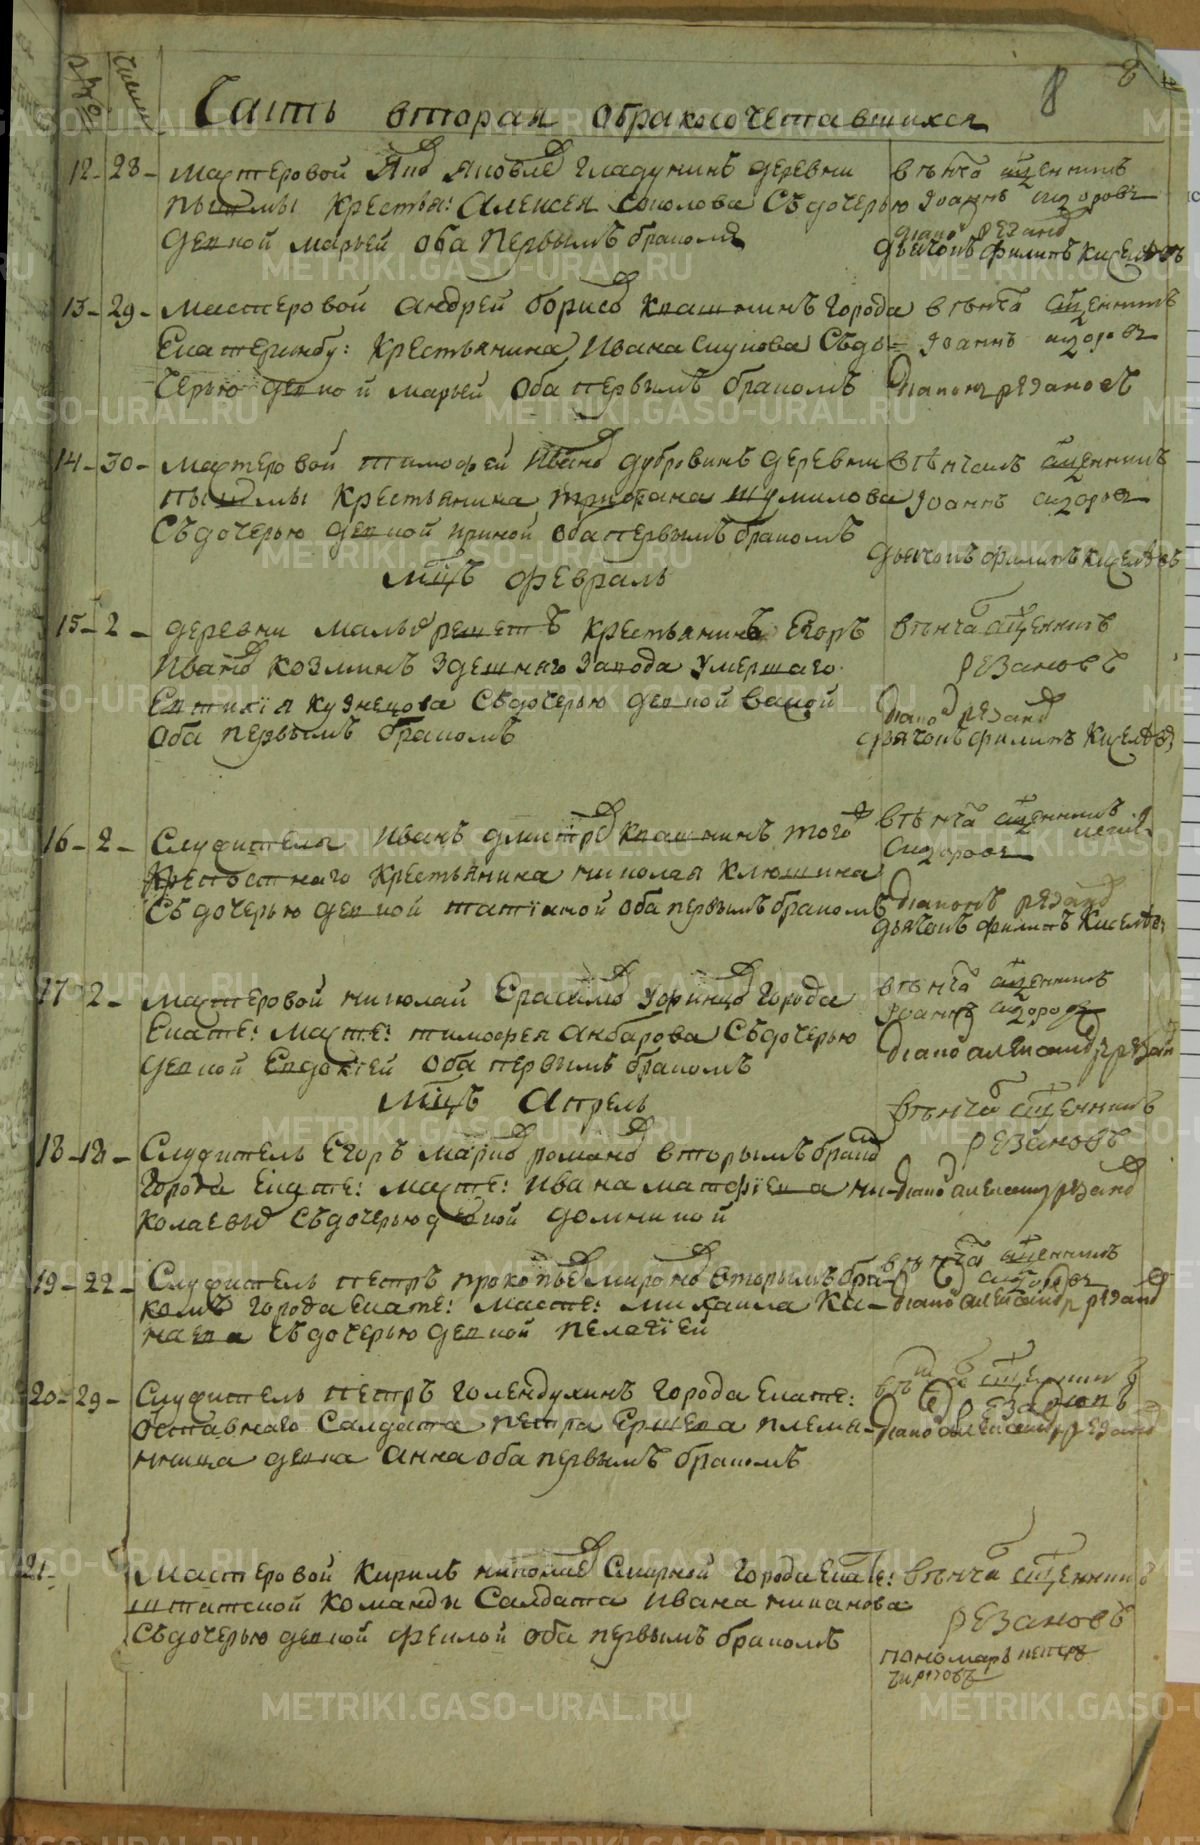 Часть вторая обракосочетавшихся
8
12 - 28 - мастеровой Яковле Гладунинъ деревни
пышмы крестья: Алексея Соколова Съдочерью
девкой марьей оба первымъ бракомъ
венча священникъ
Иоаннъ сидоровъ
диако резано
дьячокъ филипъ киселевъ
13 - 29 - мастеровой андрей борисо квашнинъ города
Екатеринбу: крестьянина Ивана Сидо
черью девкой марьей оба первымъ бракомъ
венча священникъ
Иоаннъ сидоров
диаконъ резановъ
14 - 30 - мастеровой тимофей Ивано дубровинъ деревни
пышмы крестьянина трифана шумилова
Съдочерью девкой ириной оба первымъ бракомъ
венчалъ священникъ
Иоаннъ сидоров
дьячокъ филипъ киселевъ
мцъ февраль
15 - 2 - деревни малые решетъ крестьянинъ Егоръ
Ивано козминъ здешняго завода умершаго
Евтихїя кузнецова Съдочерью девкой
оба первымъ бракомъ
венча священникъ
резановъ
диако резано
дьячокъ филипъ киселево
16 - 2 - Служитель Иванъ дмитре квашнинъ того
крепостнаго крестьянина николая клюшина
Съдочерью девкой татїаной оба первымъ бракомъ
венча священникъ
Сидоровъ
диаконъ резано
дьячокъ филипъ киселево
17 2 - мастеровой николай Ерасимо города
Екате: масте: тимофея анбарова Съдочерью
девкой Евдокїей оба первымъ бракомъ
венча священникъ
Иоаннъ сидоров
диако александръ резан
мцъ Апрель
18 - 18 - Служитель Егоръ марко романо вторымъ брако
города Екате: масте: Ивана матфїева ни-
колаевы Съдочерью девкой домникой
венча священникъ
резановъ
диако александръ резано
19 - 22 - Служитель петръ прокопье мироно вторымъ бра
комъ города Екате: масте: михаила ки-
наева Съдочерью девкой пелагїей
венча священникъ
сидоров
диако александръ резано
20 - 29 - Служитель петръ голендухинъ города Екате:
отставнаго Салдата петра Ершева племя-
нница девка анна оба первымъ бракомъ
священник
резановъ
диако александръ резано
21 - мастеровой кирилъ николае Смирной города Екате:
штатской команды Салдата Ивана никанова
Съдочерью девкой феклой оба первымъ бракомъ
венча священникъ
резановъ
пономарь петръ
METRIKI.GASO-URAL.RU